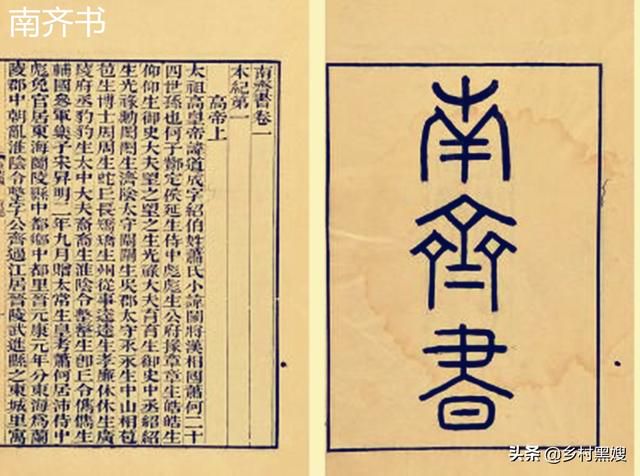 南齐书
南齊書卷一
本紀第一
高帝上
太祖高皇帝諱道成字紹伯姓蕭氏小諱鬭將漢相國蕭何二十
四世孫也何子酇定侯延生侍中彪彪生公府掾章章生皓皓生
仰仰生御史大夫望之望之生光祿大夫育育生御史中丞紹紹
生光祿勳閎閎生濟陰太守闡闡生吳郡太守永永生中山相苞
苞生博士周周生蛇丘長矯矯生州從事逵逵生孝廉休休生廣
陵府丞豹豹生太中大夫裔裔生淮陰令整整生卽丘令儁儁生
輔國參軍樂子宋昇明二年九月贈太常生皇考蕭何居沛侍中
彪免官居東海蘭陵縣中都鄉中都里晉元康元年分東海爲蘭
陵郡中朝亂淮陰令整字公齊過江居晉陵武進縣之東城里寓
南齊書
头条 @乡村黑嫂